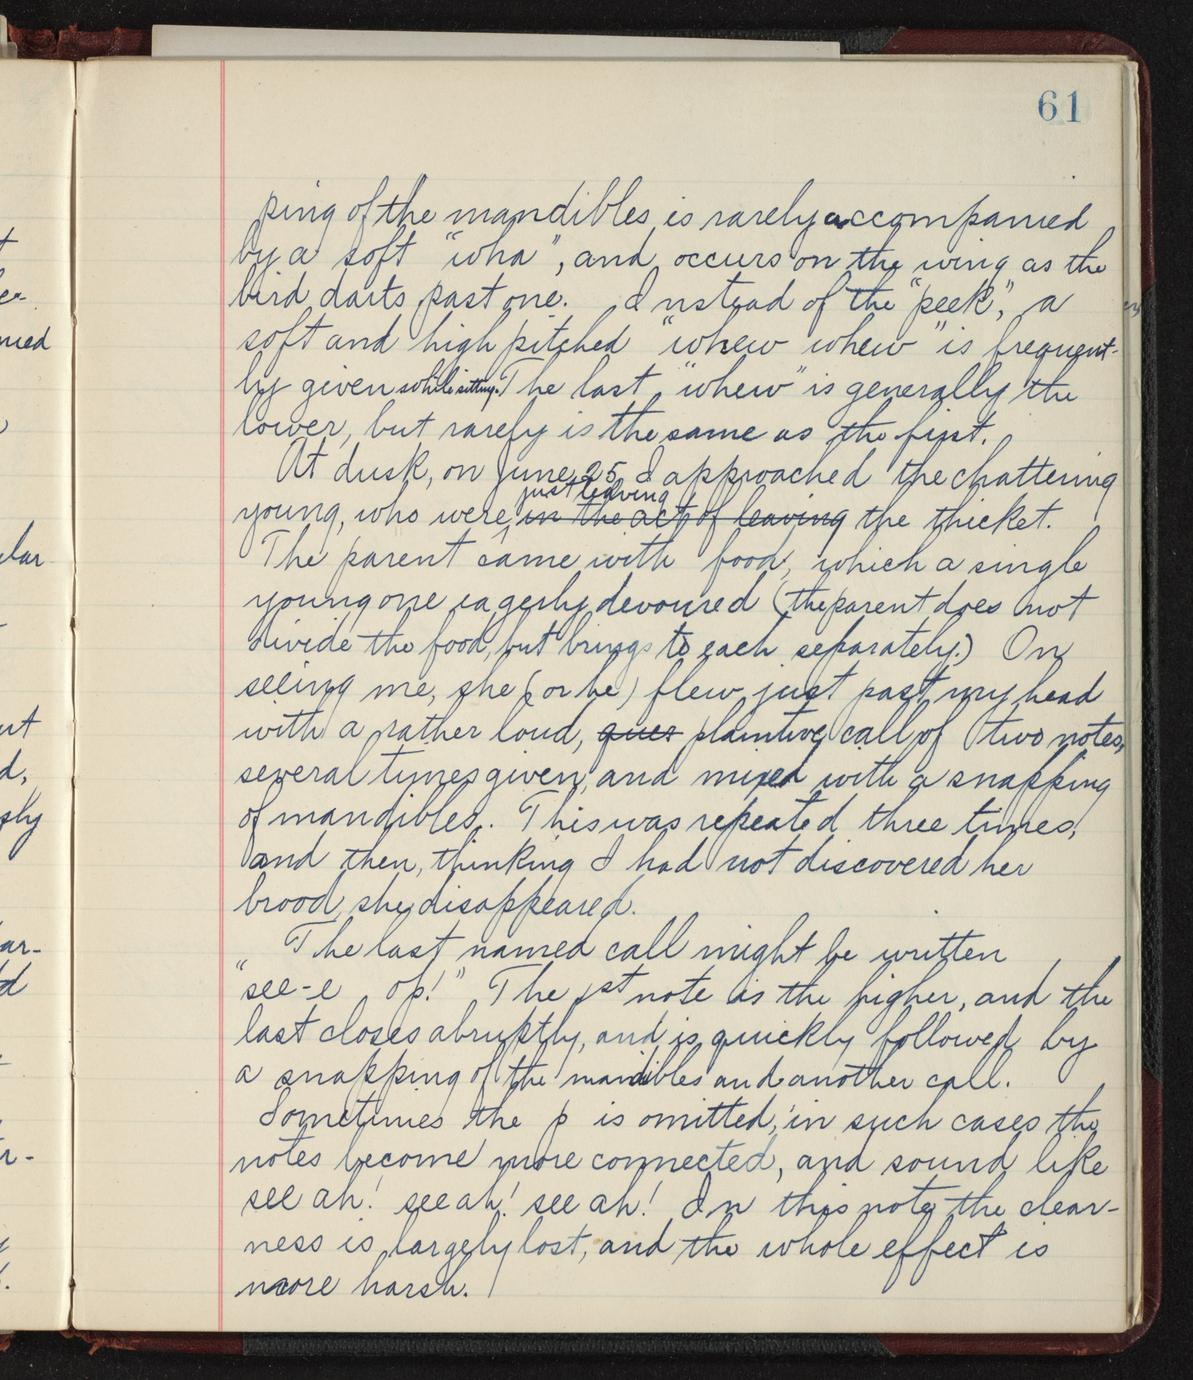 61
ping of the mandibles, is rarely accompanied
by a soft "wha", and occurs on the wing as the
bird darts past one. Instead of the "peek," a
soft and high pitched "whew whew" is frequent-
ly given while sitting. The last "whew" is generally the
lower, but rarely is the same as the first.
At dusk, on June 25, I approached the chattering
just leaving
young, who were in the act of leaving the thicket.
The parent came with food, which a single
young one eagerly devoured (the parent does not
divide the food, but brings to each separately.) On
seeing me, she (or he) flew just past my head
with a rather loud, plaintive call of two notes,
several times given, and mixed with a snapping
of mandibles. This was repeated three times,
and then, thinking I had not discovered her
brood, she disappeared.
The last named call might be written
"see-e op!" The 1st note is the higher, and the
last closes abruptly, and is quickly followed by
a snapping of the mandibles and another call.
Sometimes the p is omitted; in such cases the
notes become more connected, and sound like
see ah! see ah! see ah! In this note the clear-
ness is largely lost, and the whole effect is
more harsh.